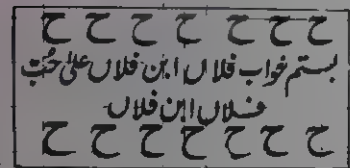 ح ح ح ح ح ح ح
بستم خواب فلاں ابن فلاں علیٰ حُبّ
فلاں ابن فلاں
ج ح ح ح ح ح ح